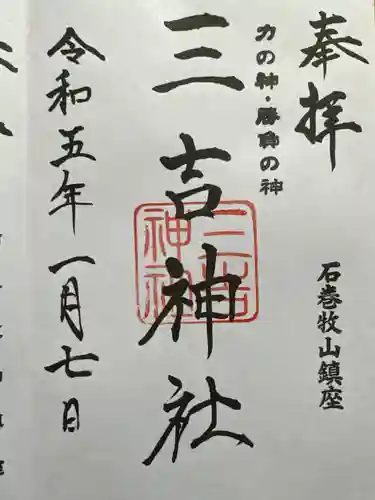 奉拝
力の神・勝負の神
石巻牧山鎮座
三吉神社
三吉神社
令和五年一月七日